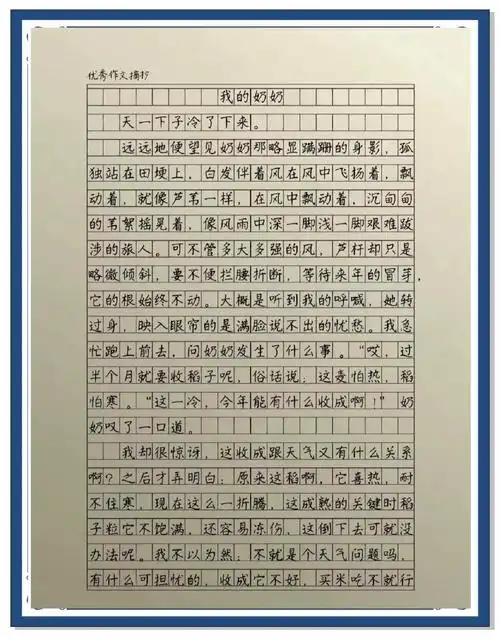 优秀作文摘抄
我的奶奶
天一下子冷了下来。
远远地便望见奶奶那略显蹒跚的身影，孤
独站在田埂上，白发伴着风在风中飞扬着，飘
动着，就像芦苇一样，在风中飘动着，沉甸甸
的苇絮摇晃着，像风雨中深一脚浅一脚艰难跋
涉的旅人。可不管多大多强的风，芦杆却只是
略微倾斜，要不便拦腰折断，等待来年的冒芽，
它的根始终不动。大概是听到我的呼喊，她转
过身，映入眼帘的是满脸说不出的忧愁。我急
忙跑上前去，问奶奶发生了什么事。“哎，过
半个月就要收稻子呢，俗话说：这麦怕热，稻
怕寒。“这一冷，今年能有什么收成啊！”奶
奶叹了一口道。
我却很惊讶，这收成跟天气又有什么关系
啊？之后才弄明白：原来这稻啊，它喜热，耐
不住寒，现在这么一折腾，这成熟的关键时稻
子粒它不饱满，还容易冻伤，这倒下去可就没
办法呢。我不以为然：不就是个天气问题吗，
有什么可担忧的，收成它不好，买米吃不就行